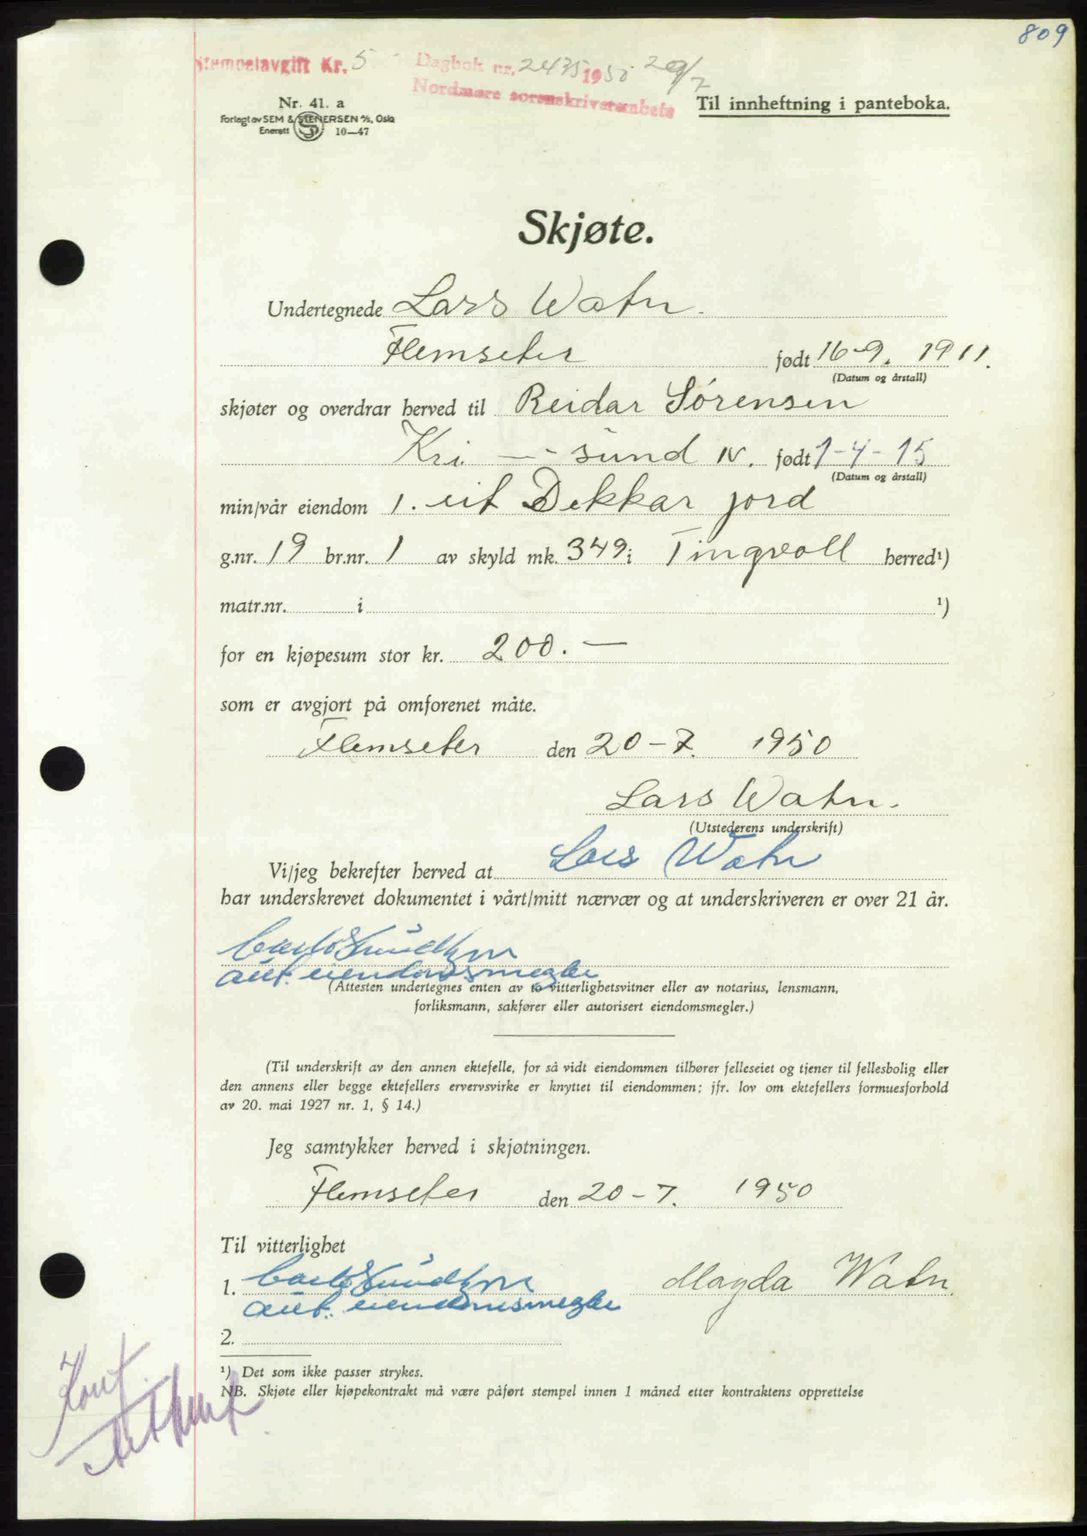 809
Stempelavgift Kr. 5
Dagbok nr. 2435 1950 29/7
Nordmøre sorenskriverembete
Nr. 41. a
Forlagt av SEM & STENERSEN A/S, Oslo
Enerett 10—47
Til innheftning i panteboka.
Skjøte.
Undertegnede Lars Watn.
Flemseter født 16-9. 1911.
(Datum og årstall)
skjøter og overdrar herved til Reidar Sørensen
Kri. — - sund N. født 1-4-15
(Datum og årstall)
min/vår eiendom 1. eit Dekkar jord
g.nr. 19 br.nr. 1 av skyld mk. 349 i Tingvoll herred¹)
matr.nr. i ¹)
for en kjøpesum stor kr. 200.—
som er avgjort på omforenet måte.
Flemseter den 20-7. 1950
Lars Watn.
(Utstederens underskrift)
Vi/jeg bekrefter herved at Lars Watn
har underskrevet dokumentet i vårt/mitt nærvær og at underskriveren er over 21 år.
aut. eiendomsmegler
(Attesten undertegnes enten av to vitterlighetsvitner eller av notarius, lensmann,
forliksmann, sakfører eller autorisert eiendomsmegler.)
(Til underskrift av den annen ektefelle, for så vidt eiendommen tilhører felleseiet og tjener til fellesbolig eller
den annens eller begge ektefellers ervervsvirke er knyttet til eiendommen; jfr. lov om ektefellers formuesforhold
av 20. mai 1927 nr. 1, § 14.)
Jeg samtykker herved i skjøtningen.
Flemseter den 20-7. 1950
Til vitterlighet
1. Magda Watn.
aut. eiendomsmegler
2.
¹) Det som ikke passer strykes.
NB. Skjøte eller kjøpekontrakt må være påført stempel innen 1 måned etter kontraktens opprettelse
Konf.